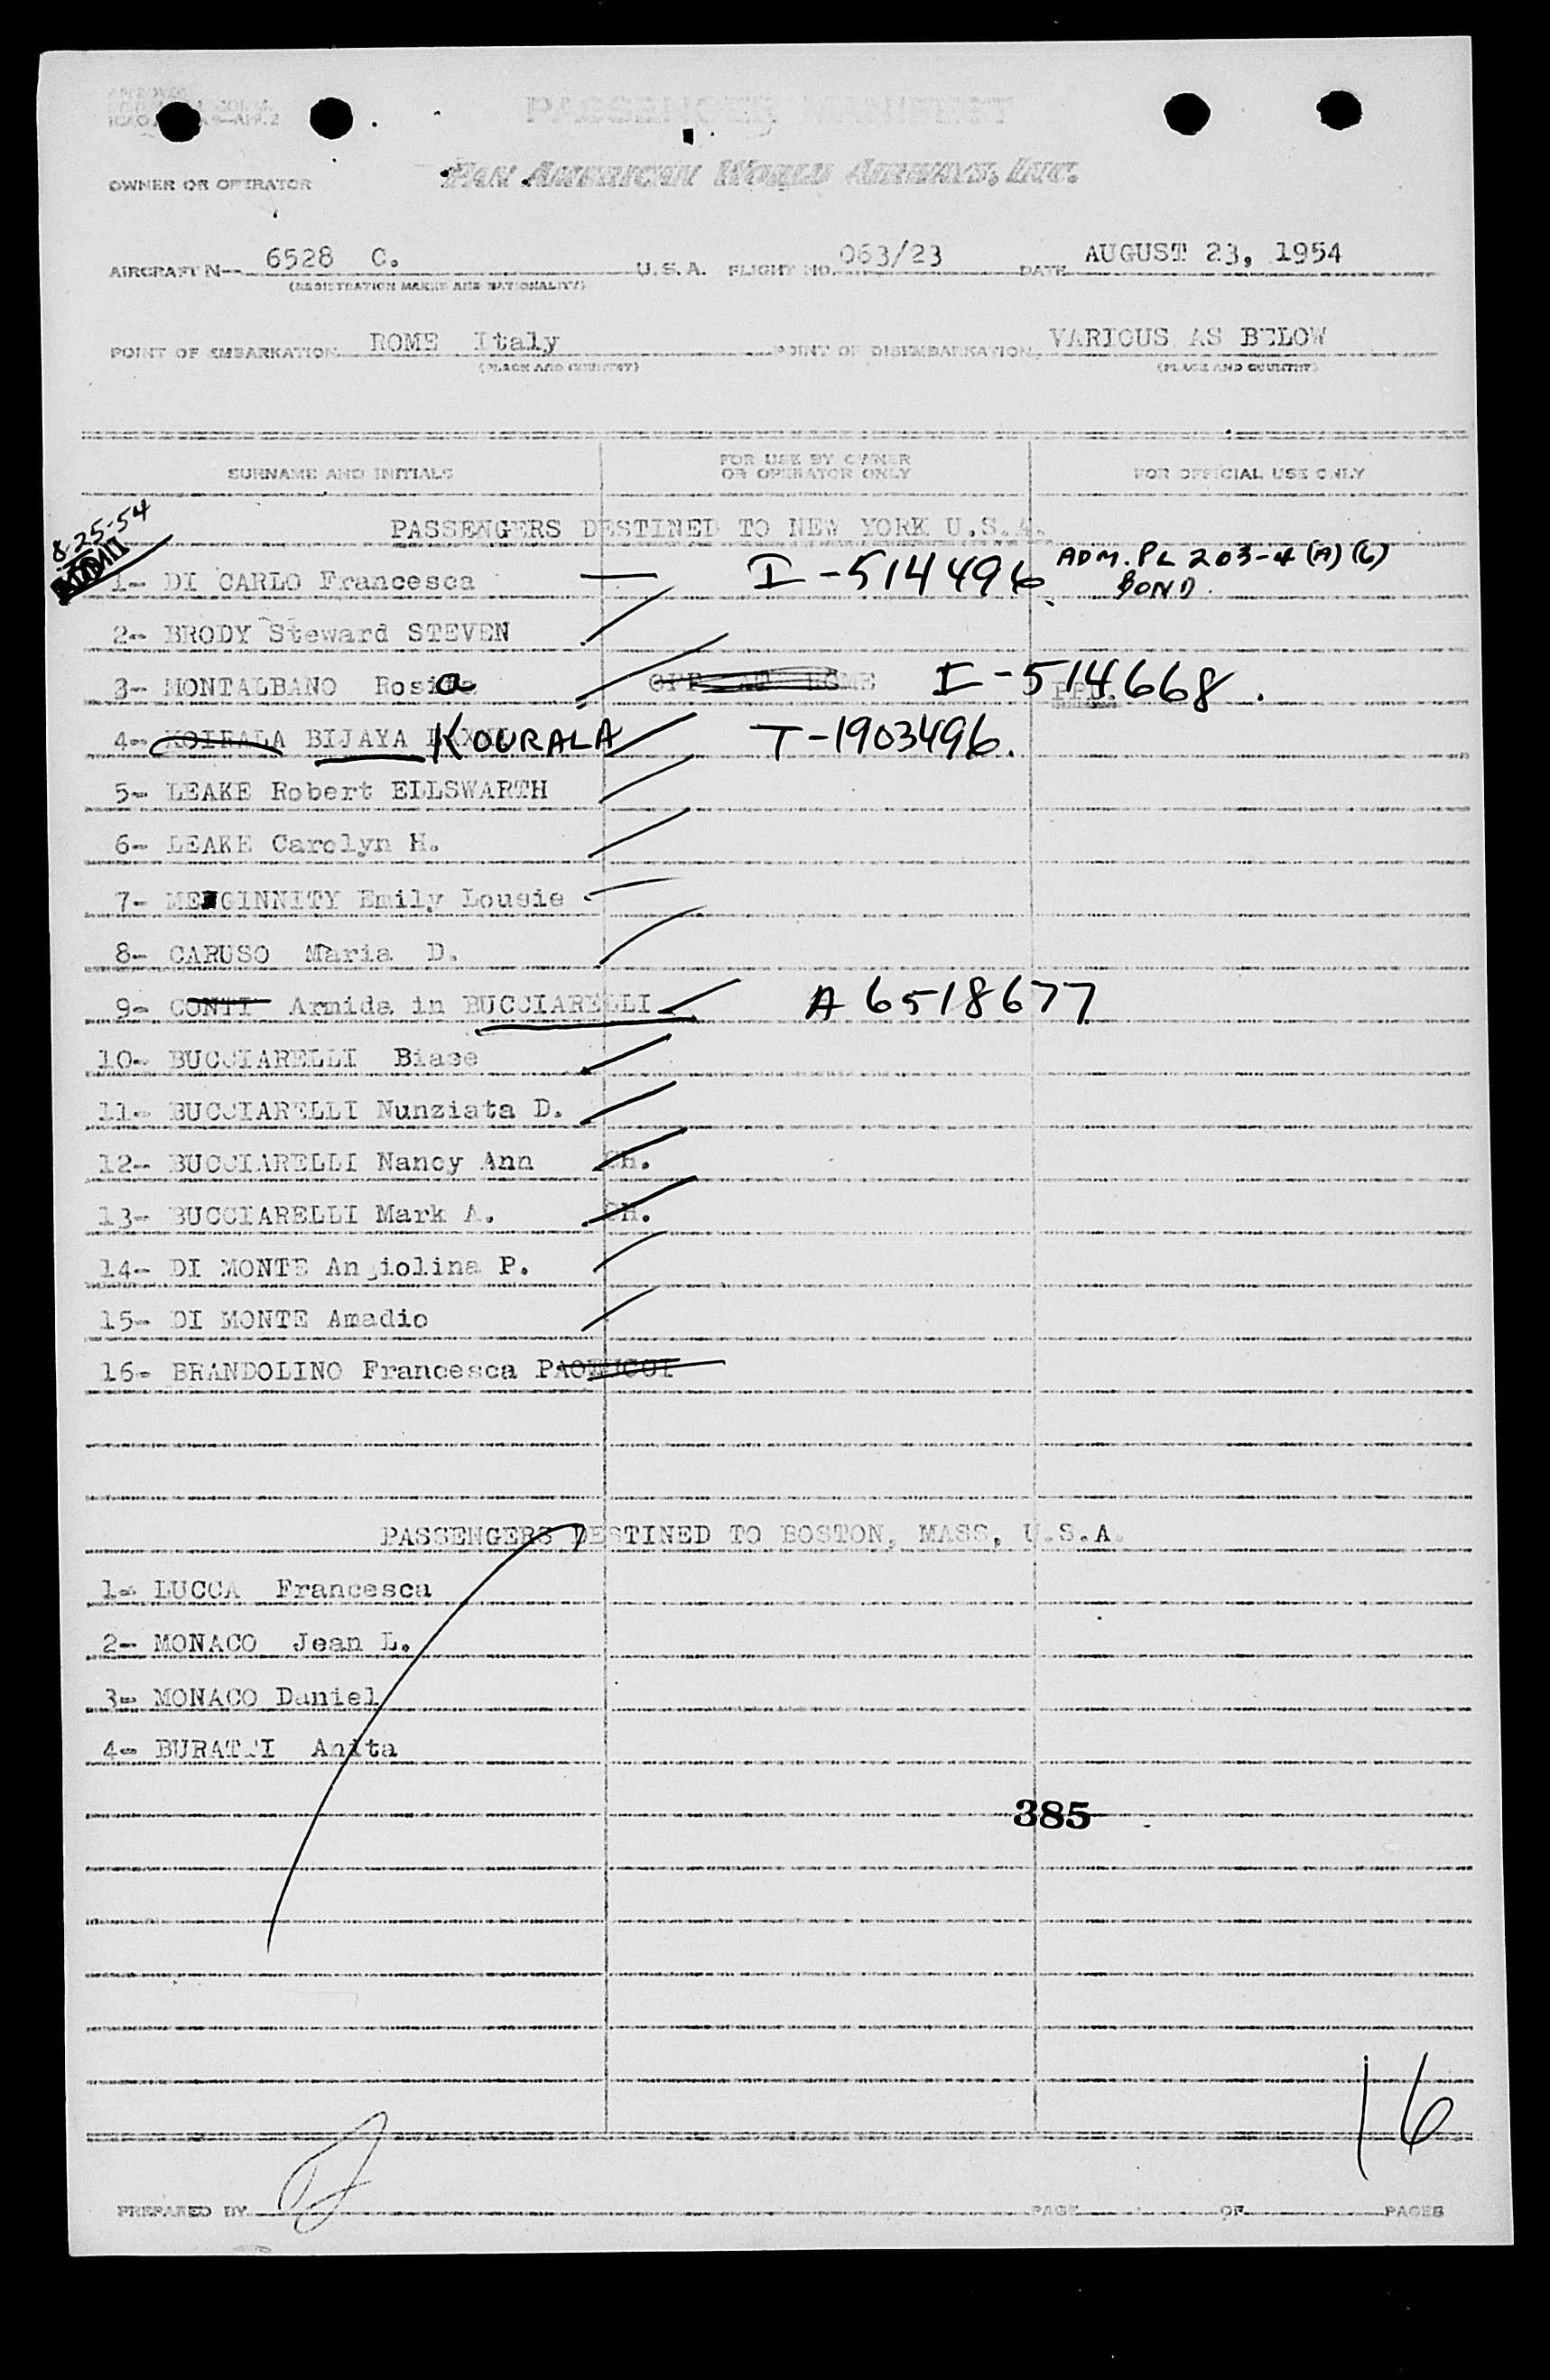 PASSENGER MANIFEST
OWNER OR OPERATOR PAN AMERICAN WORLD AIRWAYS, INC.
AIRCRAFT N-- 6528 C. U.S.A. FLIGHT NO. 063/23 DATE AUGUST 23, 1954
(REGISTRATION MARKS AND NATIONALITY)
POINT OF EMBARKATION ROME Italy POINT OF DISEMBARKATION, VARIOUS AS BELOW
(PLACE AND COUNTRY) (PLACE AND COUNTRY)
SURNAME AND INITIALS FOR USE BY OWNER OR OPERATOR ONLY FOR OFFICIAL USE ONLY
8-25-54
PASSENGERS DESTINED TO NEW YORK U.S.A.
1- DI CARLO Francesca I-514496 ADM. PL 203-4 (A) (6)
BOND.
2- BRODY Steward STEVEN
3- MONTALBANO Rosa I-514668.
4- KOIRALA BIJAYA KOURALA T-1903496.
5- LEAKE Robert ELLSWARTH
6- LEAKE Carolyn H.
7- GINNITY Emily Lousie
8- CARUSO Maria D.
9- CONTI Armida in BUCCIARELLI A6518677
10- BUCCIARELLI Biase
11- BUCCIARELLI Nunziata D.
12- BUCCIARELLI Nancy Ann CH.
13- BUCCIARELLI Mark A. CH.
14- DI MONTE Angiolina P.
15- DI MONTE Amadio
16- BRANDOLINO Francesca PAOLUCCI
PASSENGERS DESTINED TO BOSTON, MASS, U.S.A.
1- LUCCA Francesca
2- MONACO Jean L.
3- MONACO Daniel
4- BURATTI Anita
385
16
PREPARED BY PAGE OF PAGES